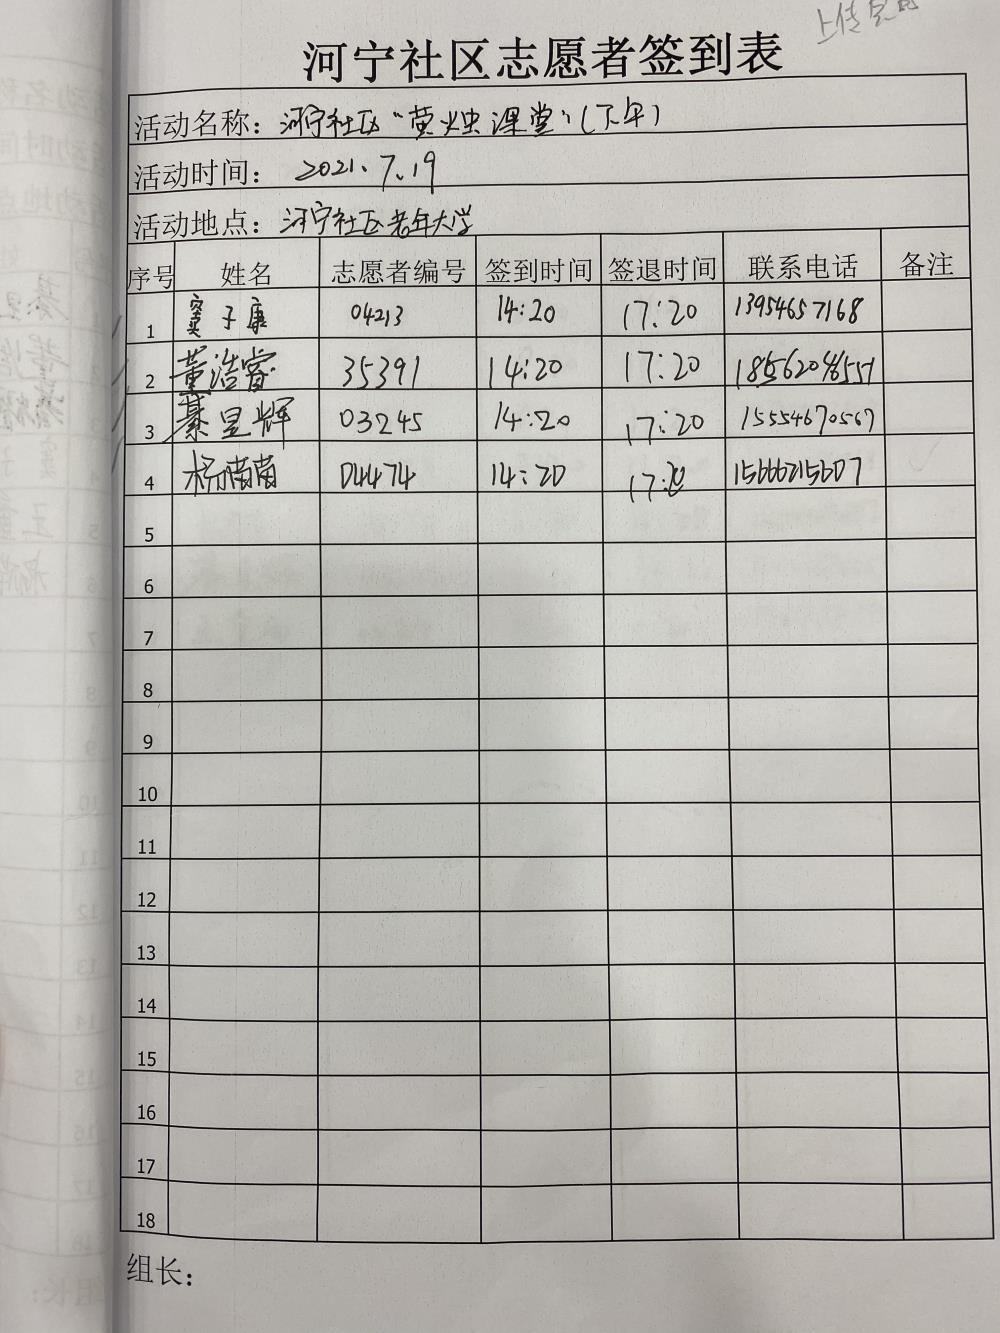 上传完成
河宁社区志愿者签到表
活动名称：河宁社区“萤火虫课堂”（下午）
活动时间：2021.7.19
活动地点：河宁社区老年大学
序号 姓名 志愿者编号 签到时间 签退时间 联系电话 备注
1 窦子康 04213 14:20 17:20 13954657168
2 董浩睿 35391 14:20 17:20 18562048557
3 綦昱辉 03245 14:20 17:20 15554670567
4 杨楠苗 04474 14:20 17:20 15666215607
5
6
7
8
9
10
11
12
13
14
15
16
17
18
组长：